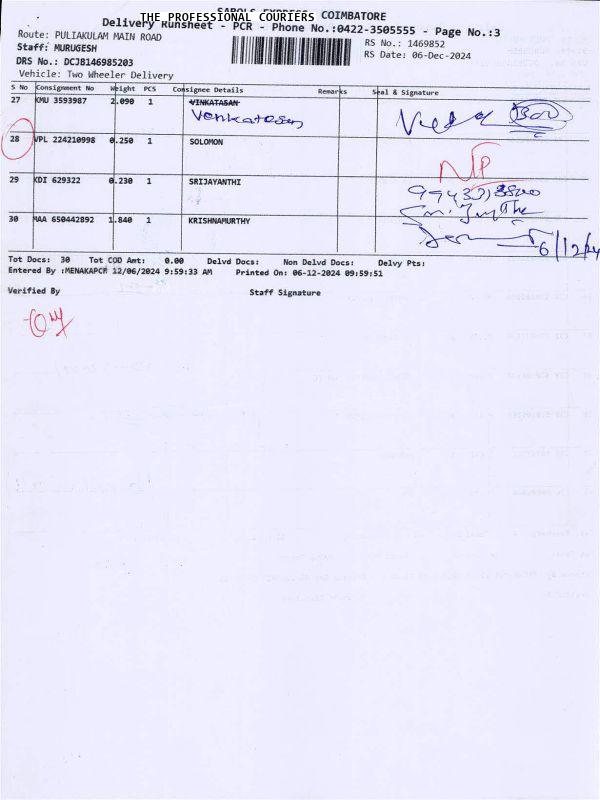 THE PROFESSIONAL COURIERS COIMBATORE
Delivery Runsheet - PCR - Phone No.:0422-3505555 - Page No.:3
Route: PULIAKULAM MAIN ROAD
RS No.: 1469852
Staff: MURUGESH
RS Date: 06-Dec-2024
DRS No.: DCJB146985203
Vehicle: Two Wheeler Delivery
S No Consignment No Weight PCS Consignee Details Remarks Seal & Signature
27 KMU 3593987 2.090 1 VENKATASAN
Venkatasan
28 VPL 224210998 0.250 1 SOLOMON
NP
29 KDI 629322 0.230 1 SRIJAYANTHI
30 MAA 650442892 1.840 1 KRISHNAMURTHY
6/12/24
Tot Docs: 30 Tot COD Amt: 0.00 Delvd Docs: Non Delvd Docs: Delvy Pts:
Entered By :MENAKAPCR 12/06/2024 9:59:33 AM Printed On: 06-12-2024 09:59:51
Verified By Staff Signature